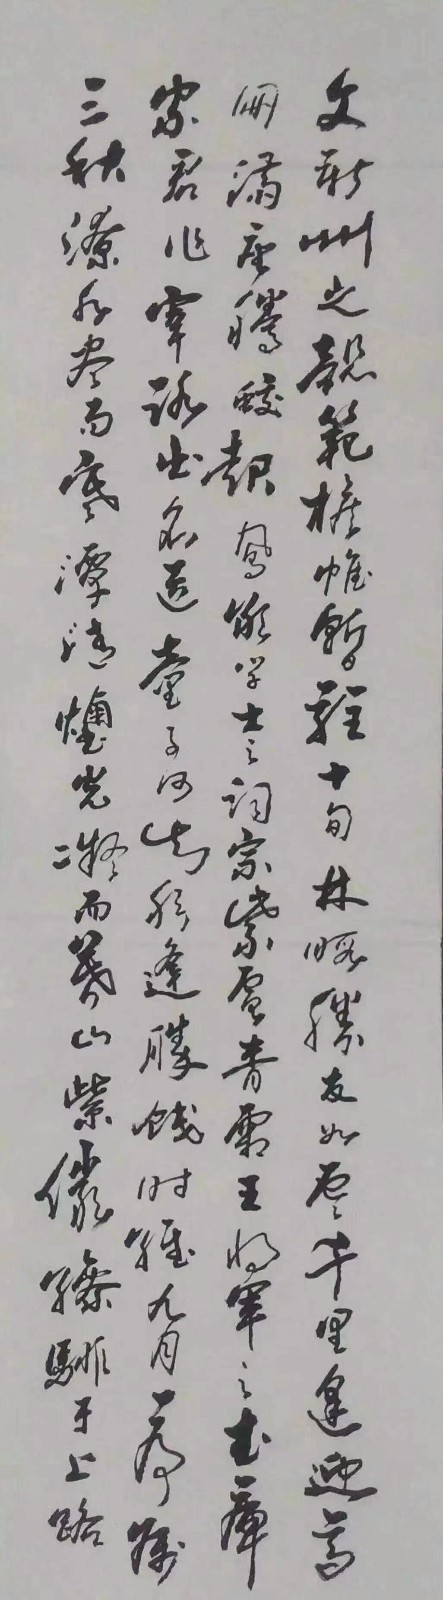 文新州之懿範襜帷暫駐十旬休暇勝友如雲千里逢迎高
朋滿座騰蛟起鳳孟学士之詞宗紫電青霜王将軍之武庫
家君作宰路出名區童子何知躬逢勝餞时維九月序屬
三秋潦水盡而寒潭清煙光凝而暮山紫儼驂騑于上路